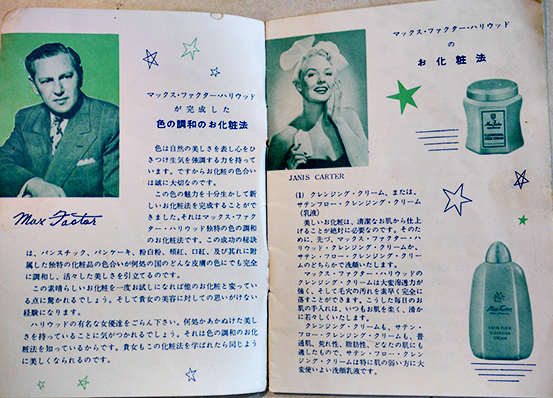 マックス・ファクター・ハリウッド
が完成した
色の調和のお化粧法
色は自然の美しさを表し心をひ
きつけ生気を強調する力を持って
います。ですからお化粧の色合い
は誠に大切なのです。
この色の魅力を十分生かして新
しいお化粧法を完成することがで
きました。それはマックス・ファク
ター・ハリウッド独特の色の調和
のお化粧法です。この成功の秘訣
は、パンスチック、パンケーキ、粉白粉、頬紅、口紅、及び其れに附
属した独特の化粧品の色合いが何処の国のどんな皮膚の色にでも完全
に調和し、活々した美しさを引立てるのです。
この素晴らしいお化粧を一度お試しになれば他のお化粧と変ってい
る点に驚かれるでしょう。そして貴女の美容に対しての思いがけない
経験になります。
ハリウッドの有名な女優達をごらん下さい。何処かあかぬけた美し
さを持っていることに気がつかれるでしょう。それは色の調和のお化
粧法を知っているからです。貴女もこの化粧法を学ばれたら同じよう
に美しくなられるのです。
Max Factor
マックス・ファクター・ハリウッド
の
お化粧法
JANIS CARTER
(1) クレンジング・クリーム、または、
サテンフロー・クレンジング・クリーム
(乳液)
美しいお化粧は、清潔なお肌から仕上
げることが絶対に必要なのです。そのた
めに、先づ、マックス・ファクター・ハ
リウッド・クレンジング・クリームか、
サテン・フロー・クレンジング・クリー
ムのどちらかで洗顔いたします。
マックス・ファクター・ハリウッドの
クレンジング・クリームは大変溶透力が
強く、そして毛穴の汚れを素早く完全に
落すことができます。こうした毎日のお
肌の手入れは、いつもお肌を柔く、清か
に若々しくいたします。
クレンジング・クリームも、サテン・
フロー・クレンジング・クリームも、普
通肌、荒れ性、脂肪性、どなたの肌にも
適したもので、サテン・フロー・クレン
ジング・クリームは特に肌の弱い方に大
変使いよい洗顔乳液です。
Max Factor
CLEANSING
COLD CREAM
Max Factor
SATIN FLOW
CLEANSING
CREAM